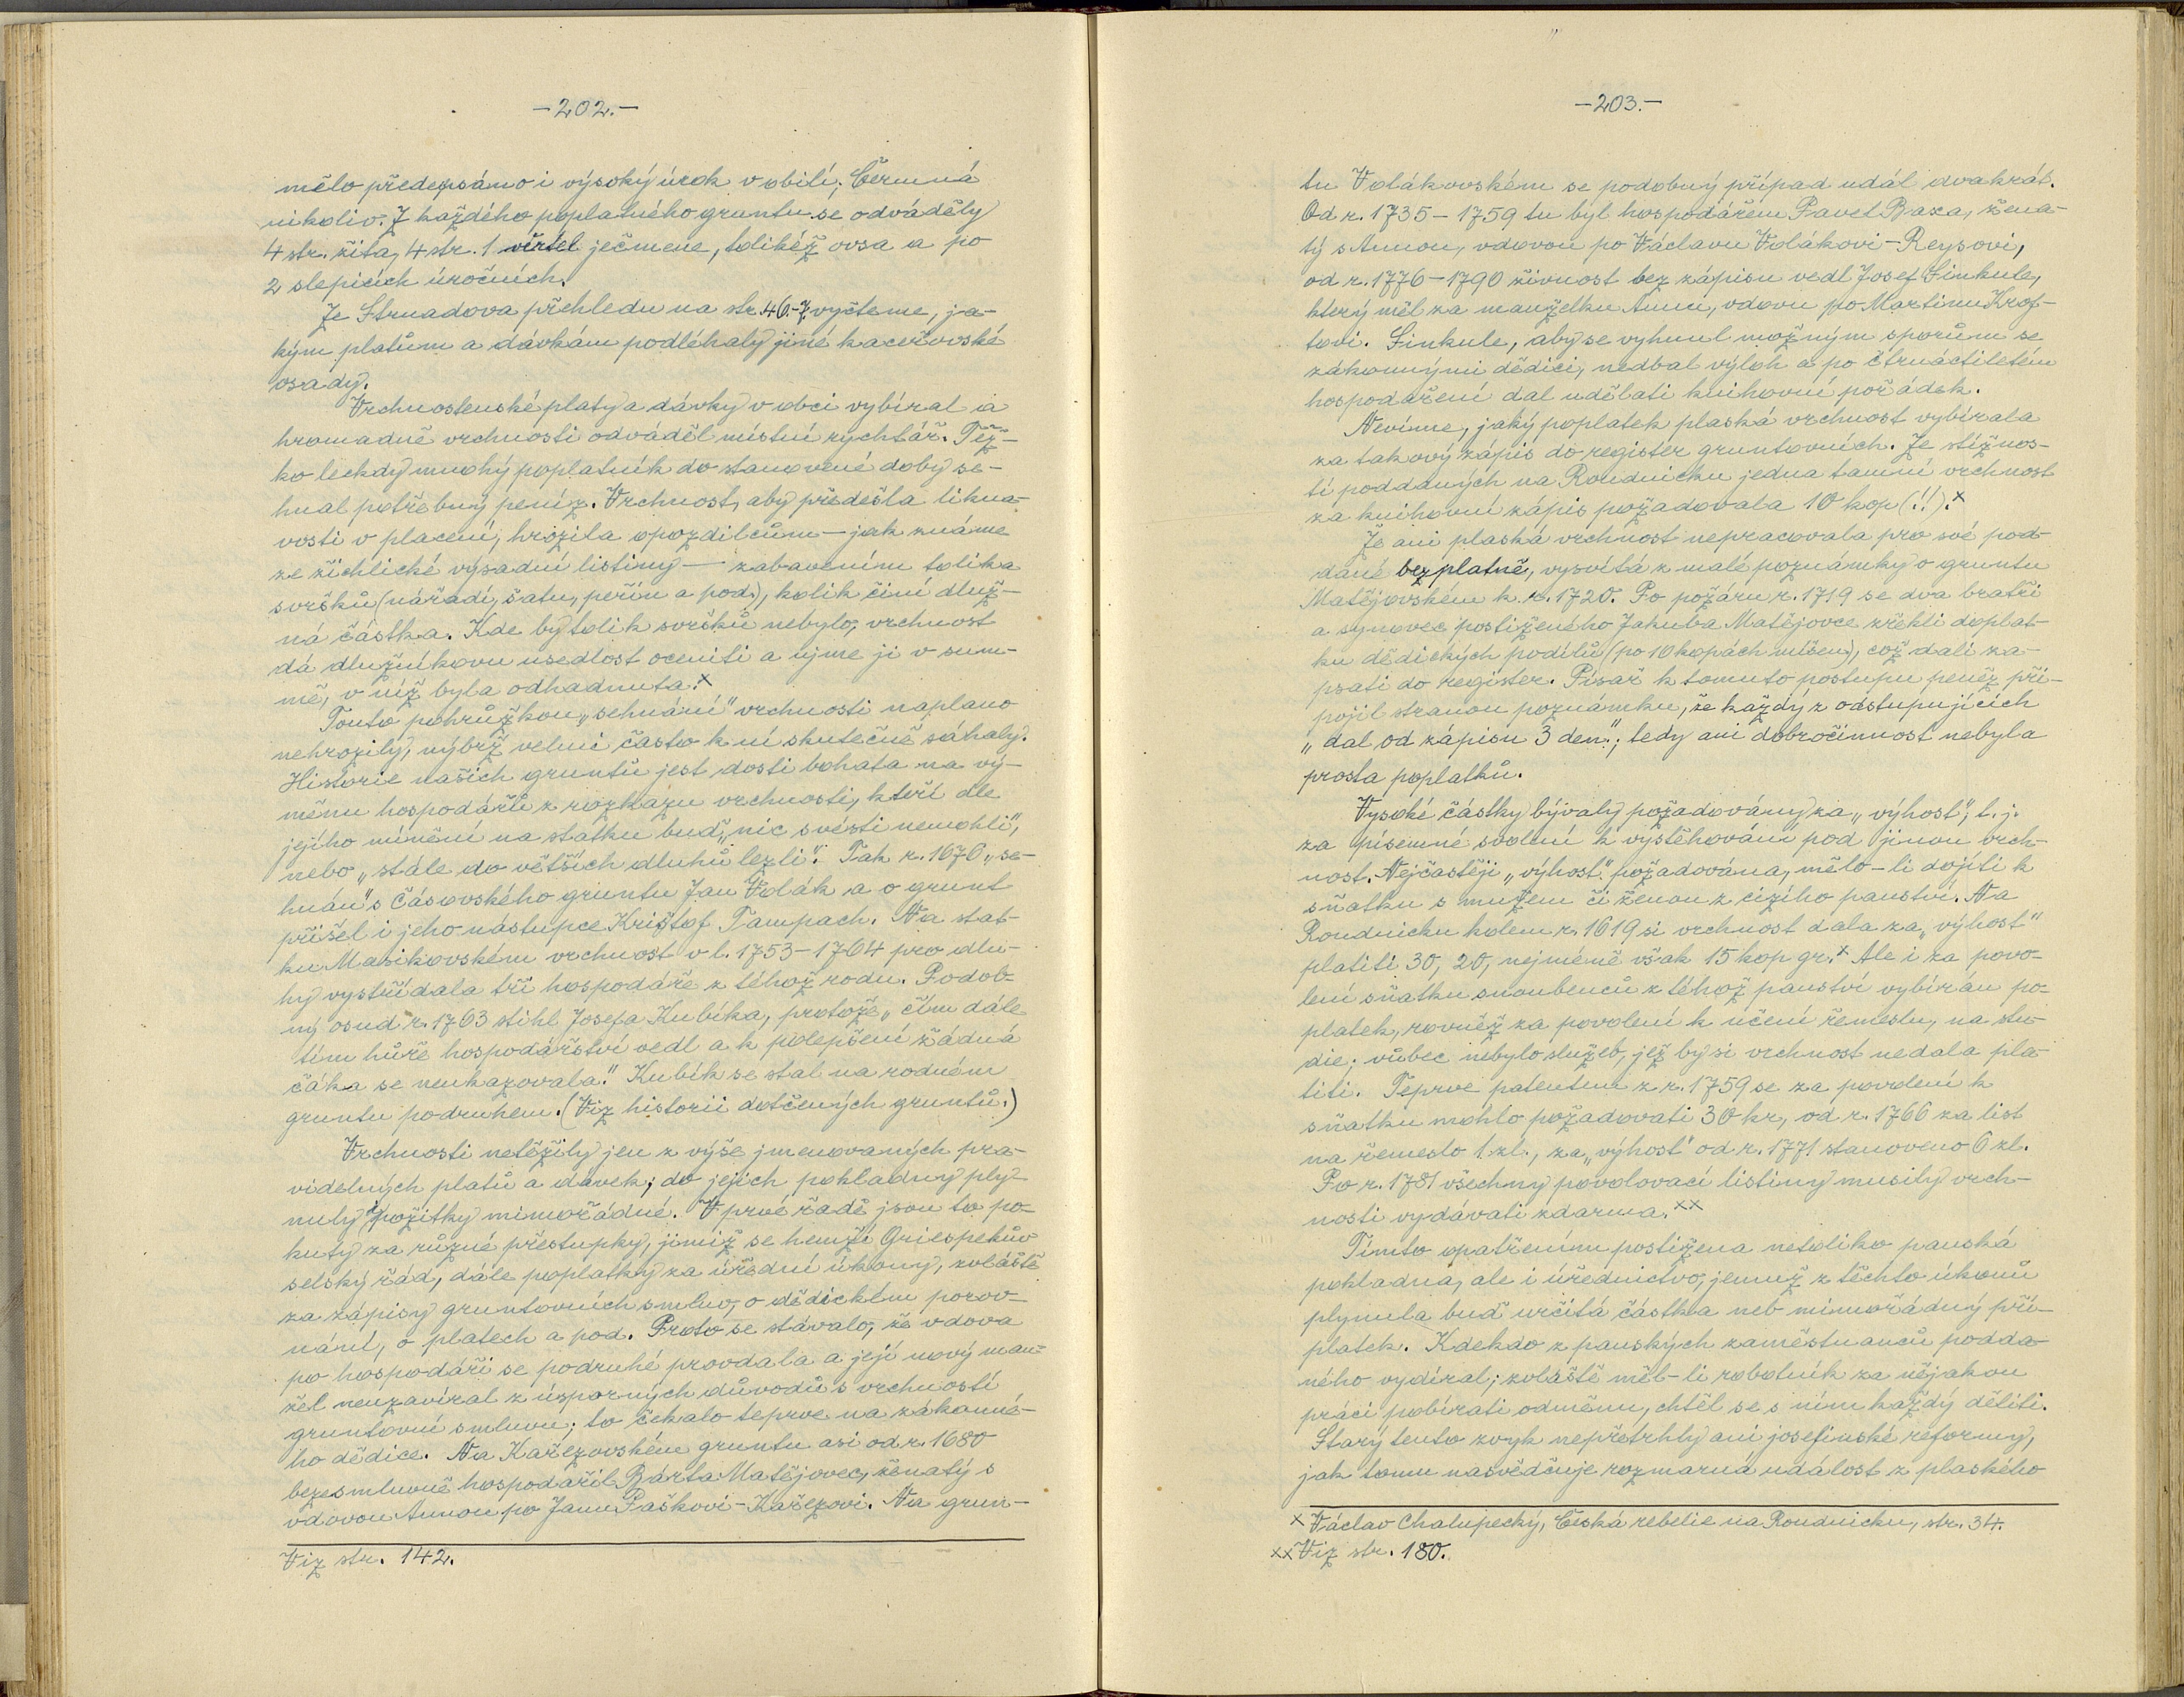 -202.-
mělo předepsáno i vysoký úrok v obilí; Čermná
nikoliv. Z každého poplatného gruntu se odváděly
4 str. žita, 4 str. 1 věrtel ječmene, tolikéž ovsa a po
2 slepicích úročních.
Ze Strnadova přehledu na str. 46.-7. vyčteme, ja-
kým platům a dávkám podléhaly jiné kaceřovské
osady.
Vrchnostenské platy a dávky v obci vybíral a
hromadně vrchnosti odváděl místní rychtář. Těž-
ko leckdy mnohý poplatník do stanovené doby se-
hnal potřebný peníz. Vrchnost, aby předešla likna-
vosti v placení, hrozila opozdilcům - jak známe
ze žichlické výsadní listiny - zabavením tolika
svršků (nářadí, šatu, peřin a pod.), kolik činí dluž-
ná částka. Kde by tolik svršků nebylo, vrchnost
dá dlužníkovu usedlost oceniti a ujme ji v sum-
mě, v níž byla odhadnuta.x
Touto pohrůžkou „sehnání" vrchnosti naplano
nehrozily, nýbrž velmi často k ní skutečně sáhaly.
Historie našich gruntů jest dosti bohata na vý-
měnu hospodářů z rozkazu vrchnosti, kteří dle
jejího mínění na statku buď „nic svésti nemohli",
nebo „stále do větších dluhů lezli". Tak r. 1676 „se-
hnán" s Čásovského gruntu Jan Volák a o grunt
přišel i jeho nástupce Krištof Tampach. Na stat-
ku Masikovském vrchnost v l. 1753-1764 pro dlu-
hy vystřídala tři hospodáře z téhož rodu. Podob-
ný osud r. 1763 stihl Josefa Kubíka, protože „čím dále
tím hůře hospodářství vedl a k polepšení žádná
čáka se neukazovala." Kubík se stal na rodném
gruntu podruhem. (Viz historii dotčených gruntů.)
Vrchnosti netěžily jen z výše jmenovaných pra-
videlných platů a dávek; do jejich pokladny ply-
nuly i požitky mimořádné. V prvé řadě jsou to po-
kuty za různé přestupky, jimiž se hemží Griespekův
selský řád, dále poplatky za úřední úkony, zvláště
za zápisy gruntovních smluv, o dědickém porov-
nání, o platech a pod. Proto se stávalo, že vdova
po hospodáři se podruhé provdala a její nový man-
žel neuzavíral z úsporných důvodů s vrchností
gruntovní smluvu; to čekalo teprve na zákonné-
ho dědice. Na Kařezovském gruntu asi od r. 1680
bezesmluvně hospodařil Bárta Matějovec, ženatý s
vdovou Annou po Janu Paškovi-Kařezovi. Na grun-
Viz str. 142.
-203.-
tu Volákovském se podobný případ udál dvakrát.
Od r. 1735-1759 tu byl hospodářem Pavel Baxa, žena-
tý s Annou, vdovou po Václavu Volákovi-Reysovi,
od r. 1776-1790 živnost bez zápisu vedl Josef Sinkule,
který měl za manželku Annu, vdovu po Martinu Krof-
tovi. Sinkule, aby se vyhnul možným sporům se
zákonnými dědici, nedbal výloh a po čtrnáctiletém
hospodaření dal udělati knihovní pořádek.
Nevíme, jaký poplatek plaská vrchnost vybírala
za takový zápis do register gruntovních. Ze stížnos-
tí poddaných na Roudnicku jedna tamní vrchnost
za knihovní zápis požadovala 10 kop (!!).x
Že ani plaská vrchnost nepracovala pro své pod-
dané bezplatně, vysvítá z malé poznámky o gruntu
Matějovském k r. 1720. Po požáru r. 1719 se dva bratři
a synovec postiženého Jakuba Matějovce zřekli doplat-
ku dědických podílů (po 10 kopách míšen.), což dali za-
psati do register. Písař k tomuto postupu peněz při-
pojil stranou poznámku, že každý z odstupujících
„dal od zápisu 3 den."; tedy ani dobročinnost nebyla
prosta poplatků.
Vysoké částky bývaly požadovány za „výhost", t. j.
za písemné svolení k vystěhování pod jinou vrch-
nost. Nejčastěji „výhost" požadována, mělo-li dojíti k
sňatku s mužem či ženou z cizího panství. Na
Roudnicku kolem r. 1619 si vrchnost dala za „výhost"
platiti 30, 20, nejméně však 15 kop gr.x Ale i za povo-
lení sňatku snoubenců z téhož panství vybírán po-
platek, rovněž za povolení k učení řemeslu, na stu-
die; vůbec nebylo služeb, jež by si vrchnost nedala pla-
titi. Teprve patentem z r. 1759 se za povolení k
sňatku mohlo požadovati 30 kr, od r. 1766 za list
na řemeslo 1 zl., za „výhost" od r. 1771 stanoveno 6 zl.
Po r. 1781 všechny povolovací listiny musily vrch-
nosti vydávati zdarma.xx
Tímto opatřením postižena netoliko panská
pokladna, ale i úřednictvo, jemuž z těchto úkonů
plynula buď určitá částka neb mimořádný pří-
platek. Kdekdo z panských zaměstnanců podda-
ného vydíral; zvláště měl-li robotník za nějakou
práci pobírati odměnu, chtěl se s ním každý děliti.
Starý tento zvyk nepřetrhly ani josefinské reformy,
jak tomu nasvědčuje rozmarná událost z plaského
x Václav Chalupecký, Česká rebelie na Roudnicku, str. 34.
xx Viz str. 180.